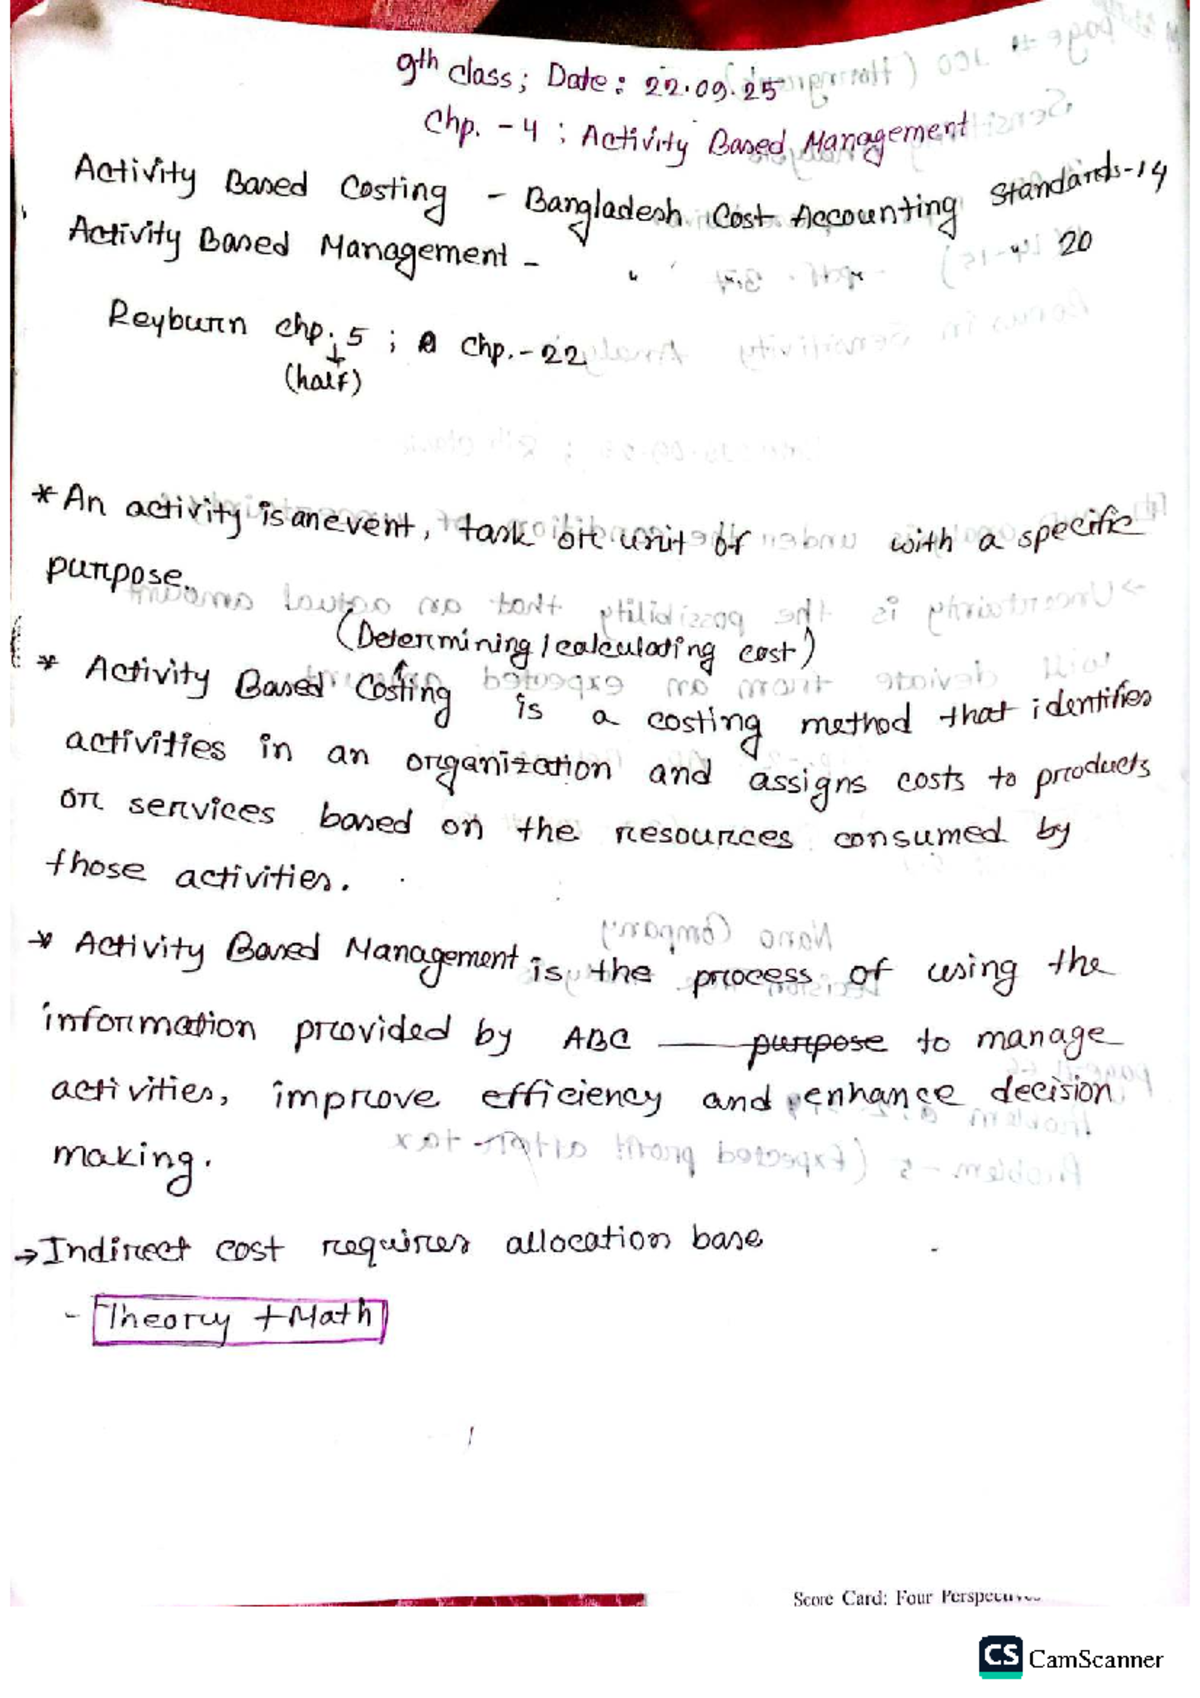 9th class; Date: 22.09.25
Chp. - 4 : Activity Based Management
Activity Based Costing - Bangladesh Cost Accounting Standards-14
Activity Based Management - " " " 20
Reyburn chp. 5 ; Chp.-22
(half)
* An activity is an event, task or unit of with a specific
purpose.
(Determining/calculating cost)
* Activity Based Costing is a costing method that identifies
activities in an organization and assigns costs to products
or services based on the resources consumed by
those activities.
* Activity Based Management is the process of using the
information provided by ABC — purpose to manage
activities, improve efficiency and enhance decision
making.
→ Indirect cost requires allocation base
- Theory + Math
Score Card: Four Perspectives
CS CamScanner